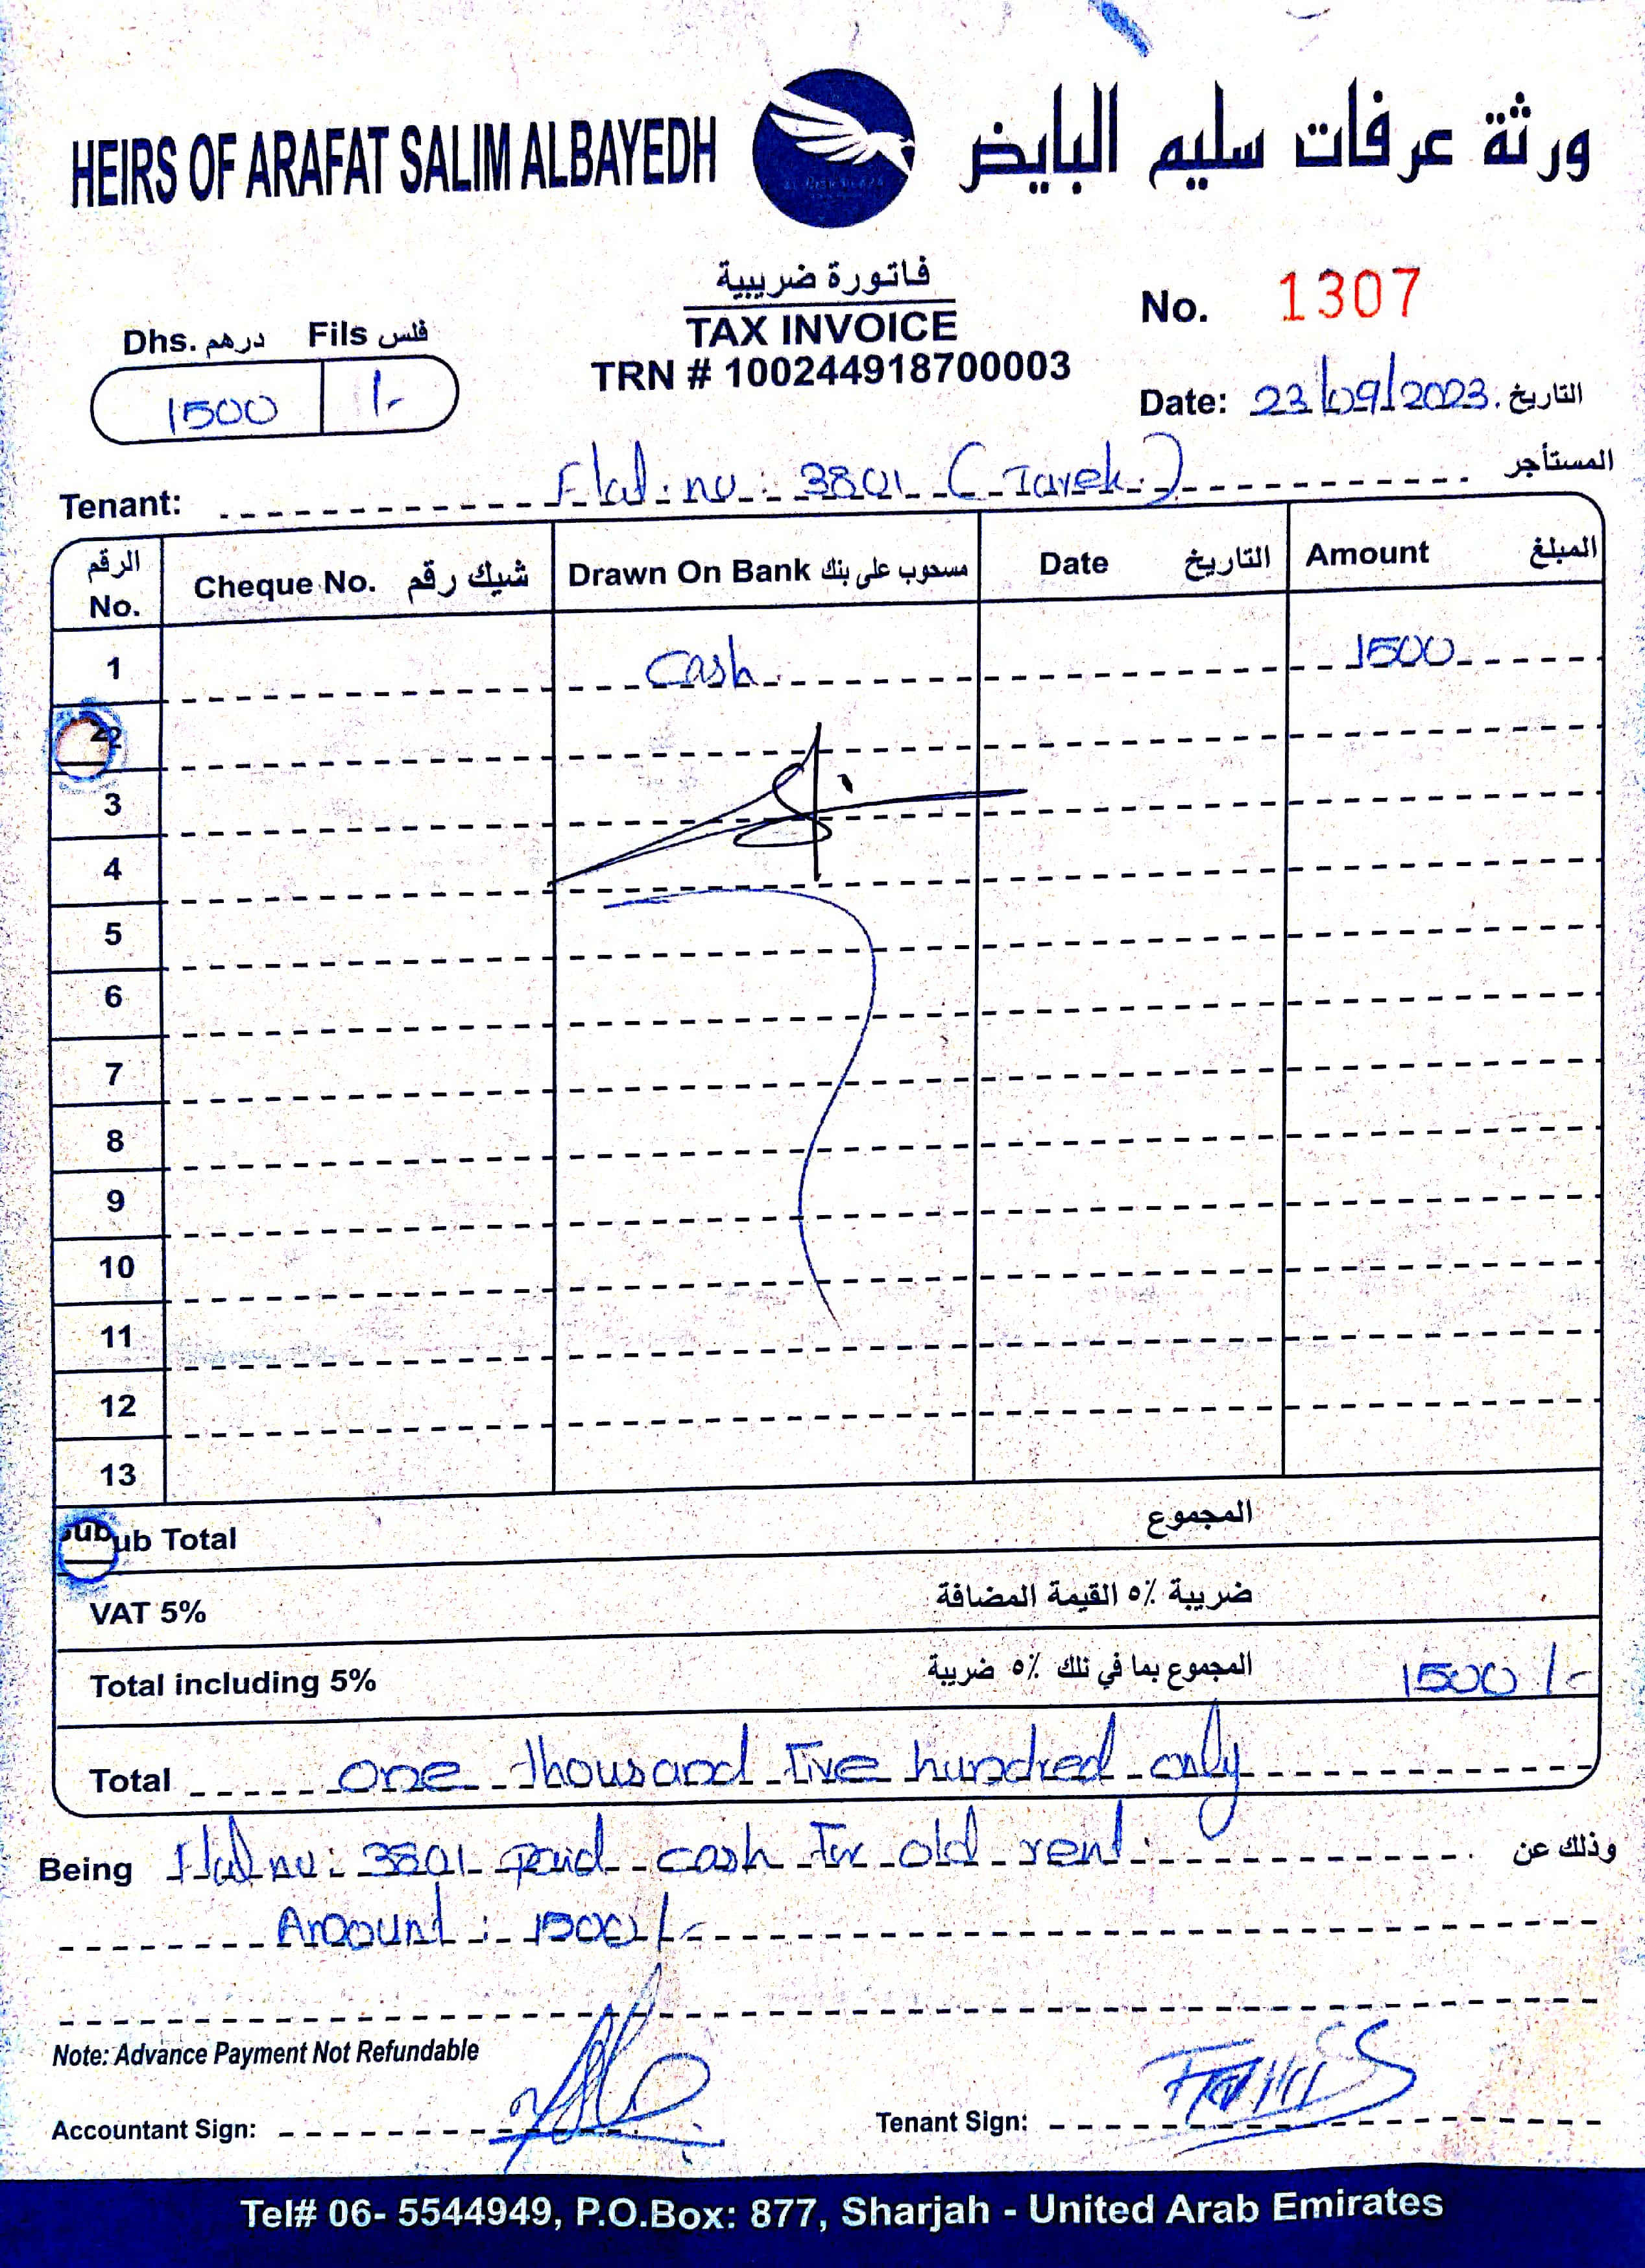 HEIRS OF ARAFAT SALIM ALBAYEDH ورثة عرفات سليم البايض
فاتورة ضريبية
TAX INVOICE
TRN # 100244918700003
No. 1307
Dhs. درهم Fils فلس
1500 /-
Date: 23/09/2023. التاريخ
Tenant: Flat. no: 3801 (Tarek.) المستأجر
الرقم No. Cheque No. شيك رقم Drawn On Bank مسحوب على بنك Date التاريخ Amount المبلغ
1 Cash. 1500
2
3
4
5
6
7
8
9
10
11
12
13
Sub Total المجموع
VAT 5% ضريبة ٥٪ القيمة المضافة
Total including 5% المجموع بما في ذلك ٥٪ ضريبة 1500/-
Total one thousand Five hundred only
Being Flat no: 3801 paid cash For old rent. وذلك عن
Amount: 1500/-
Note: Advance Payment Not Refundable
Accountant Sign: Tenant Sign:
Tel# 06- 5544949, P.O.Box: 877, Sharjah - United Arab Emirates